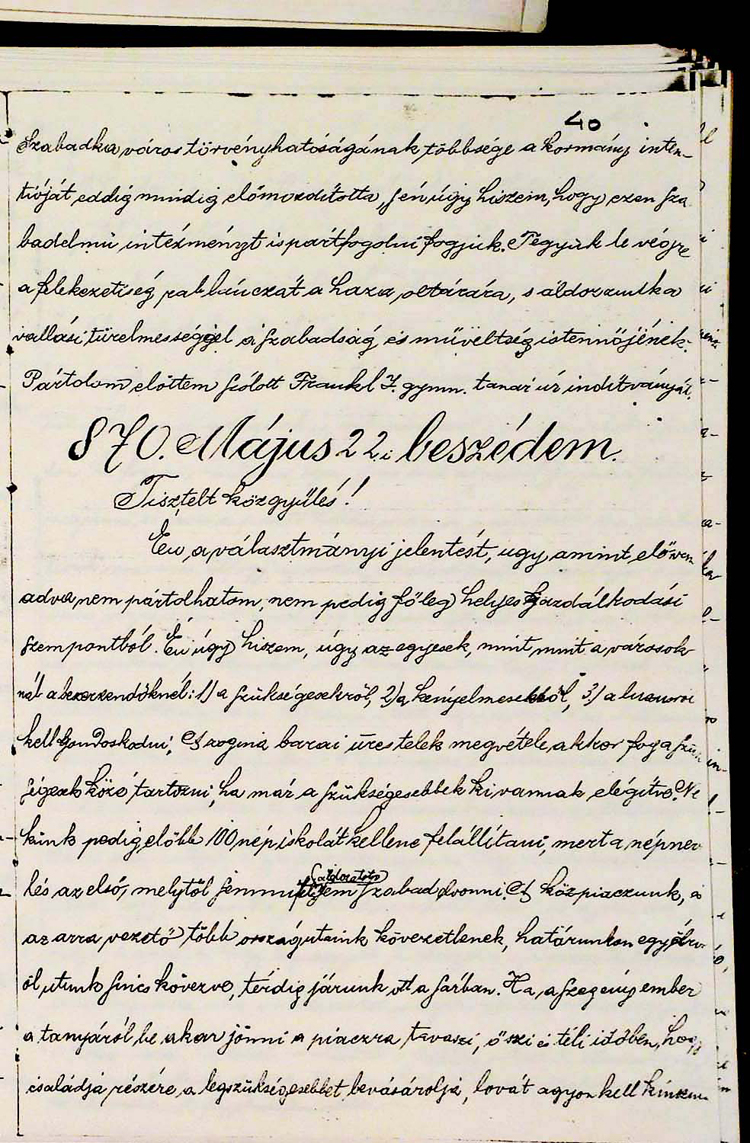 40
Szabadka város törvényhatóságának többsége a kormány inten-
tióját eddig mindig előmozditotta, s én úgy hiszem, hogy ezen sza
badelmü intézményt is pártfogolni fogjuk. Tegyük le végre
a felekezetiség rablánczát a haza oltárára, s áldozzunk a
vallási türelmességgel a szabadság és műveltség istennőjének.
Pártolom előttem szólott Frankl I. gymn. tanár úr inditványát.
870. Május 22.i beszédem.
Tisztelt közgyűlés!
Én a választmányi jelentést, ugy amint előven
adva nem pártolhatom, nem pedig főleg helyes gazdálkodási
szempontból. Én úgy hiszem, úgy az egyesek, mint mint a városok
nál a beszerzendőknél: 1) a szükségesekről, 2) a kényelmesekről, 3) a luxusról
kell gondoskodni, A barai üres telek megvétele akkor fog a szük
ségesek közé tartozni, ha már a szükségesebbek ki vannak elégitve. Ne
künk pedig előbb 100 népiskolát kellene felállítani, mert a népnev
lés az első, melytől semmi áldozatot sem szabad vonni. A köz piaczunk, s
az arra vezető több országutaink kövezetlenek, határunkon egy
öl utunk sincs kövezve, térdig járunk ott a sárban. Ha a szegény ember
a tanyáról be akar jönni a piaczra tavaszi, őszi és téli időben, hogy
családja részére a legszükségesebbet bevásárolja, lovát agyon kell kinzan